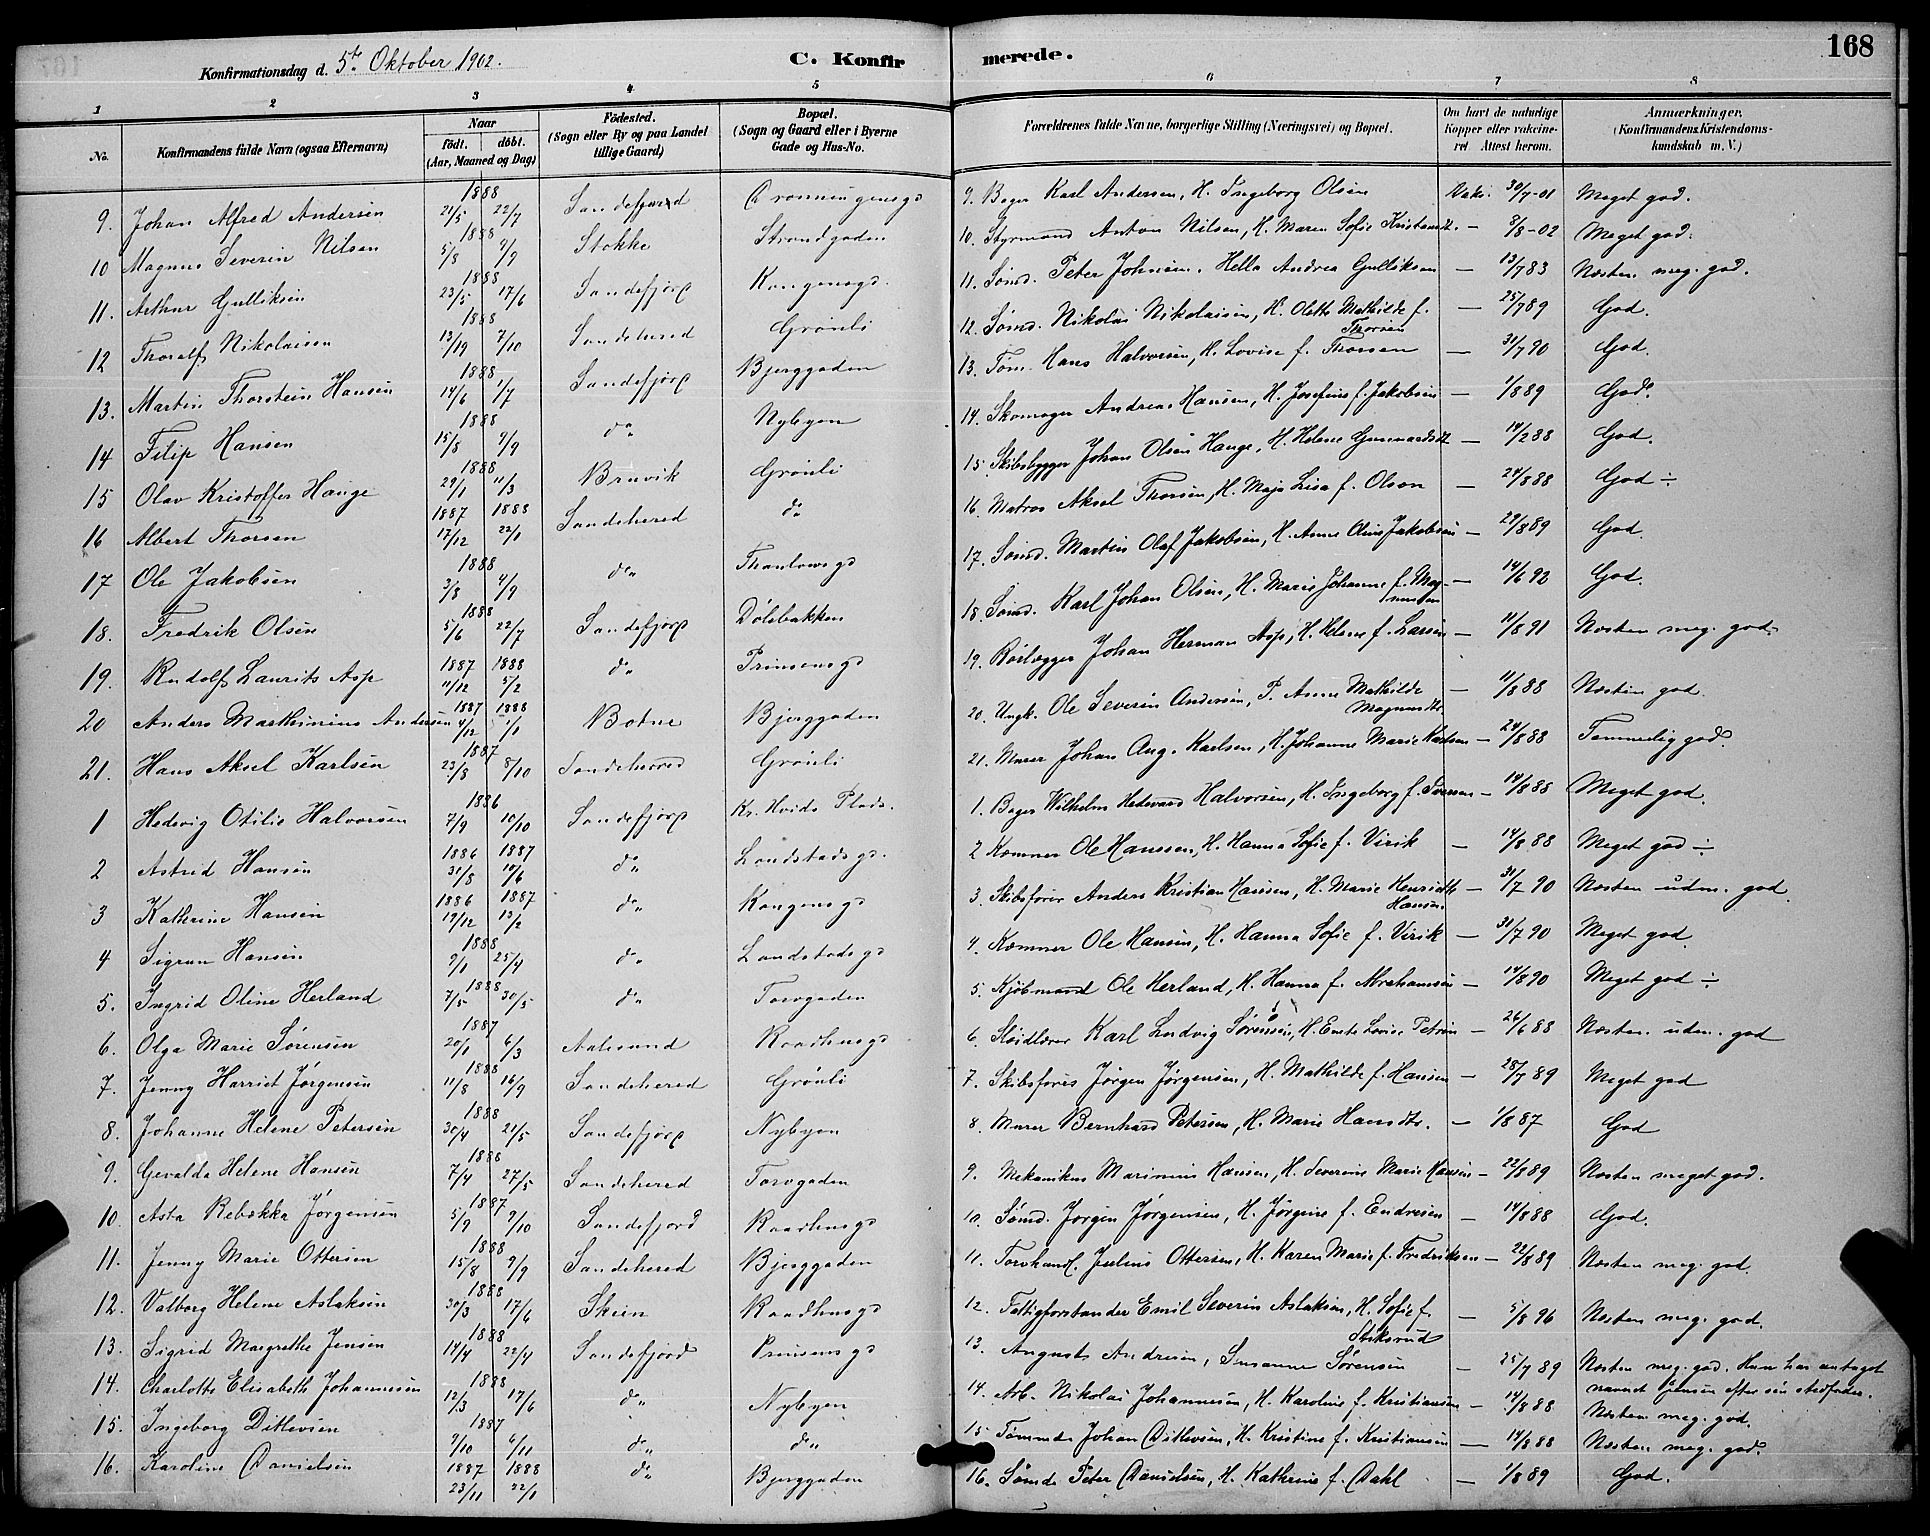 168
Konfirmationsdag d. 5te Oktober 1902. C. Konfirmerede.
1 2 3 4 5 6 7 8
No. Konfirmandens fulde Navn (ogsaa Efternavn) Naar født. døbt. (Aar, Maaned og Dag) Fødested. (Sogn eller By og paa Landet tillige Gaard) Bopæl. (Sogn og Gaard eller i Byerne Gade og Hus-No.) Forældrenes fulde Navne, borgerlige Stilling (Næringsvei) og Bopæl. Om havt de naturlige Kopper eller vakcineret. Attest herom. Anmærkninger. (Konfirmandens Kristendomskundskab m. V.)
9. Johan Alfred Andersen 1888 21/5 22/7 Sandefjord Dronningensgd 9. Bager Karl Andersen, H. Ingeborg Olsen Vaks. 30/7-01 Meget god.
10 Magnus Severin Nilsen 1888 5/8 9/9 Stokke Strandgaden 10. Styrmand Anton Nilsen, H. Maren Sofie Kristansdt. — 8/8-02 Meget god.
11. Arthur Gulliksen 1888 23/5 17/6 Sandefjord Kongensgd. 11. Sømd. Peter Johnsen. Hella Andrea Gulliksen — 13/7 83 Næsten meg. god.
12 Thoralf Nikolaisen 1888 13/19 7/10 Sandehered Grønli 12. Sømd. Nikolai Nikolaisen, H. Olette Mathilde f. Thorsen — 25/7 89 God.
13. Martin Thorstein Hansen 1888 14/6 1/7 Sandefjord Bjerggaden 13. Tøm. Hans Halvorsen, H. Lovise f. Thorsen — 31/7 90 God.
14 Filip Hansen 1888 15/8 9/9 do Nybyen 14. Skomager Andreas Hansen, H. Josefine f. Jakobsen — 1/8 89 God.
15 Olav Kristoffer Hauge 1888 29/1 11/3 Bruvik Grønli 15. Skibsbygger Johan Olsen Hauge, H. Helene Gunnarsdt — 14/2 88 God.
16 Albert Thorsen 1887 17/12 1888 22/1 Sandehered do 16. Matros Aksel Thorsen, H. Maja Lisa f. Olson — 24/8 88 God ÷
17 Ole Jakobsen 1888 3/8 4/9 do Thaulowsgd 17. Sømd. Martin Olaf Jakobsen, H. Anne Oline Jakobsen — 29/8 89 God.
18. Fredrik Olsen 1888 5/6 22/7 Sandefjord Dølebakken 18. Sømd. Karl Johan Olsen, H. Marie Johanne f. Magnussen — 14/6 92 God.
19. Rudolf Laurits Asp 1887 11/12 1888 5/2 do Prinsensgd 19. Rørlægger Johan Herman Asp, H. Helene f. Larsen — 11/8 91 Næsten meg. god.
20 Anders Marthinius Andersen 1887 4/12 1888 1/1 Botne Bjerggaden 20. Ungk. Ole Severin Andersen, P. Anne Mathilde Magnusdt. — 11/8 88 Næsten god.
21. Hans Aksel Karlsen 1887 23/8 8/10 Sandeherred Grønli 21. Murer Johan Aug. Karlsen, H. Johanne Marie Karlsen — 24/8 88 Temmelig god.
1 Hedevig Otilie Halvorsen 1886 7/9 10/10 Sandefjord Kr. Hvids Plads. 1. Bager Wilhelm Hedevard Halvorsen, H. Ingeborg f. Svensen — 14/8 88 Meget god.
2 Astrid Hansen 1886 31/8 1887 10/6 do Landstadsgd. 2 Kæmner Ole Hanssen, H. Hanna Sofie f. Virik — 14/8 88 Meget god ÷
3 Kathrine Hansen 1886 19/12 1887 13/2 do Kongensgd 3. Skibsfører Anders Kristian Hansen, H. Marie Henriette Hansen — 31/7 90 Næsten udm. god.
4 Sigrun Hansen 1888 9/1 25/4 do Landstadsgd 4. Kæmner Ole Hansen, H. Hanna Sofie f. Virik — 31/7 90 Meget god.
5. Ingrid Oline Herland 1888 7/5 30/5 do Torvgaden 5. Kjøbmand Ole Herland, H. Hanna f. Abrahamsen — 14/8 90 Meget god ÷
6. Olga Marie Sørensen 1887 20/1 6/3 Aalesund Raadhusgd 6. Sløidlærer Karl Ludvig Sørensen, H. Lovise Petrine — 26/6 88 Næsten udm. god
7. Jenny Harriet Jørgensen 1888 11/8 16/9 Sandehered Grønli 7. Skibsfører Jørgen Jørgensen, H. Mathilde f. Hansen — 28/7 89 Meget god
8. Johanne Helene Petersen 1888 30/4 21/5 Sandefjord Nybyen 8. Murer Bernhard Petersen, H. Marie Hansdtr. — 1/8 87 God
9. Gevalda Helene Hansen 1888 7/4 27/5 Sandehered Torvgaden 9. Mekanikus Marinius Hansen, H. Severine Marie Hansen — 22/8 89 Næsten meget god.
10. Asta Rebekka Jørgensen 1887 5/9 9/10 Sandefjord Raadhusgd 10. Sømd. Jørgen Jørgensen, H. Jørgine f. Endresen — 14/8 88 God.
11. Jenny Marie Ottersen 1888 15/8 9/9 Sandehered Bjerggaden 11. Torvhandl. Julius Ottersen, H. Karen Marie f. Fredriksen — 22/8 89 Næsten meg. god.
12. Valborg Helene Aslaksen 1888 30/3 17/6 Skien Raadhusgd 12. Fattigforstander Emil Severin Aslaksen, H. Sofie f. Stiksrud — 5/8 96 Næsten meg. god.
13. Sigrid Margrethe Jensen 1888 14/4 22/4 Sandefjord Prinsensgd 13. August Andresen, Susanne Sørensen — 25/7 89 Næsten meg. god. Hun har antaget navnet Jensen efter sin Stedfader.
14. Charlotte Elisabeth Johannesen 1888 12/3 17/6 do Nybyen 14. Arb. Nikolai Johannesen, H. Karoline f. Kristiansen — 14/8 88 Næsten meg. god.
15. Ingeborg Ditlevsen 1887 9/10 6/11 do do 15 Tømmd. Johan Ditlevsen, H. Kristine f. Kristiansen — 14/8 88 Næsten meg. god.
16. Karoline Danielsen 1887 23/11 1888 22/1 do Bjerggaden 16. Sømd. Peter Danielsen, H. Kathrine f. Dahl — 1/8 89 God.